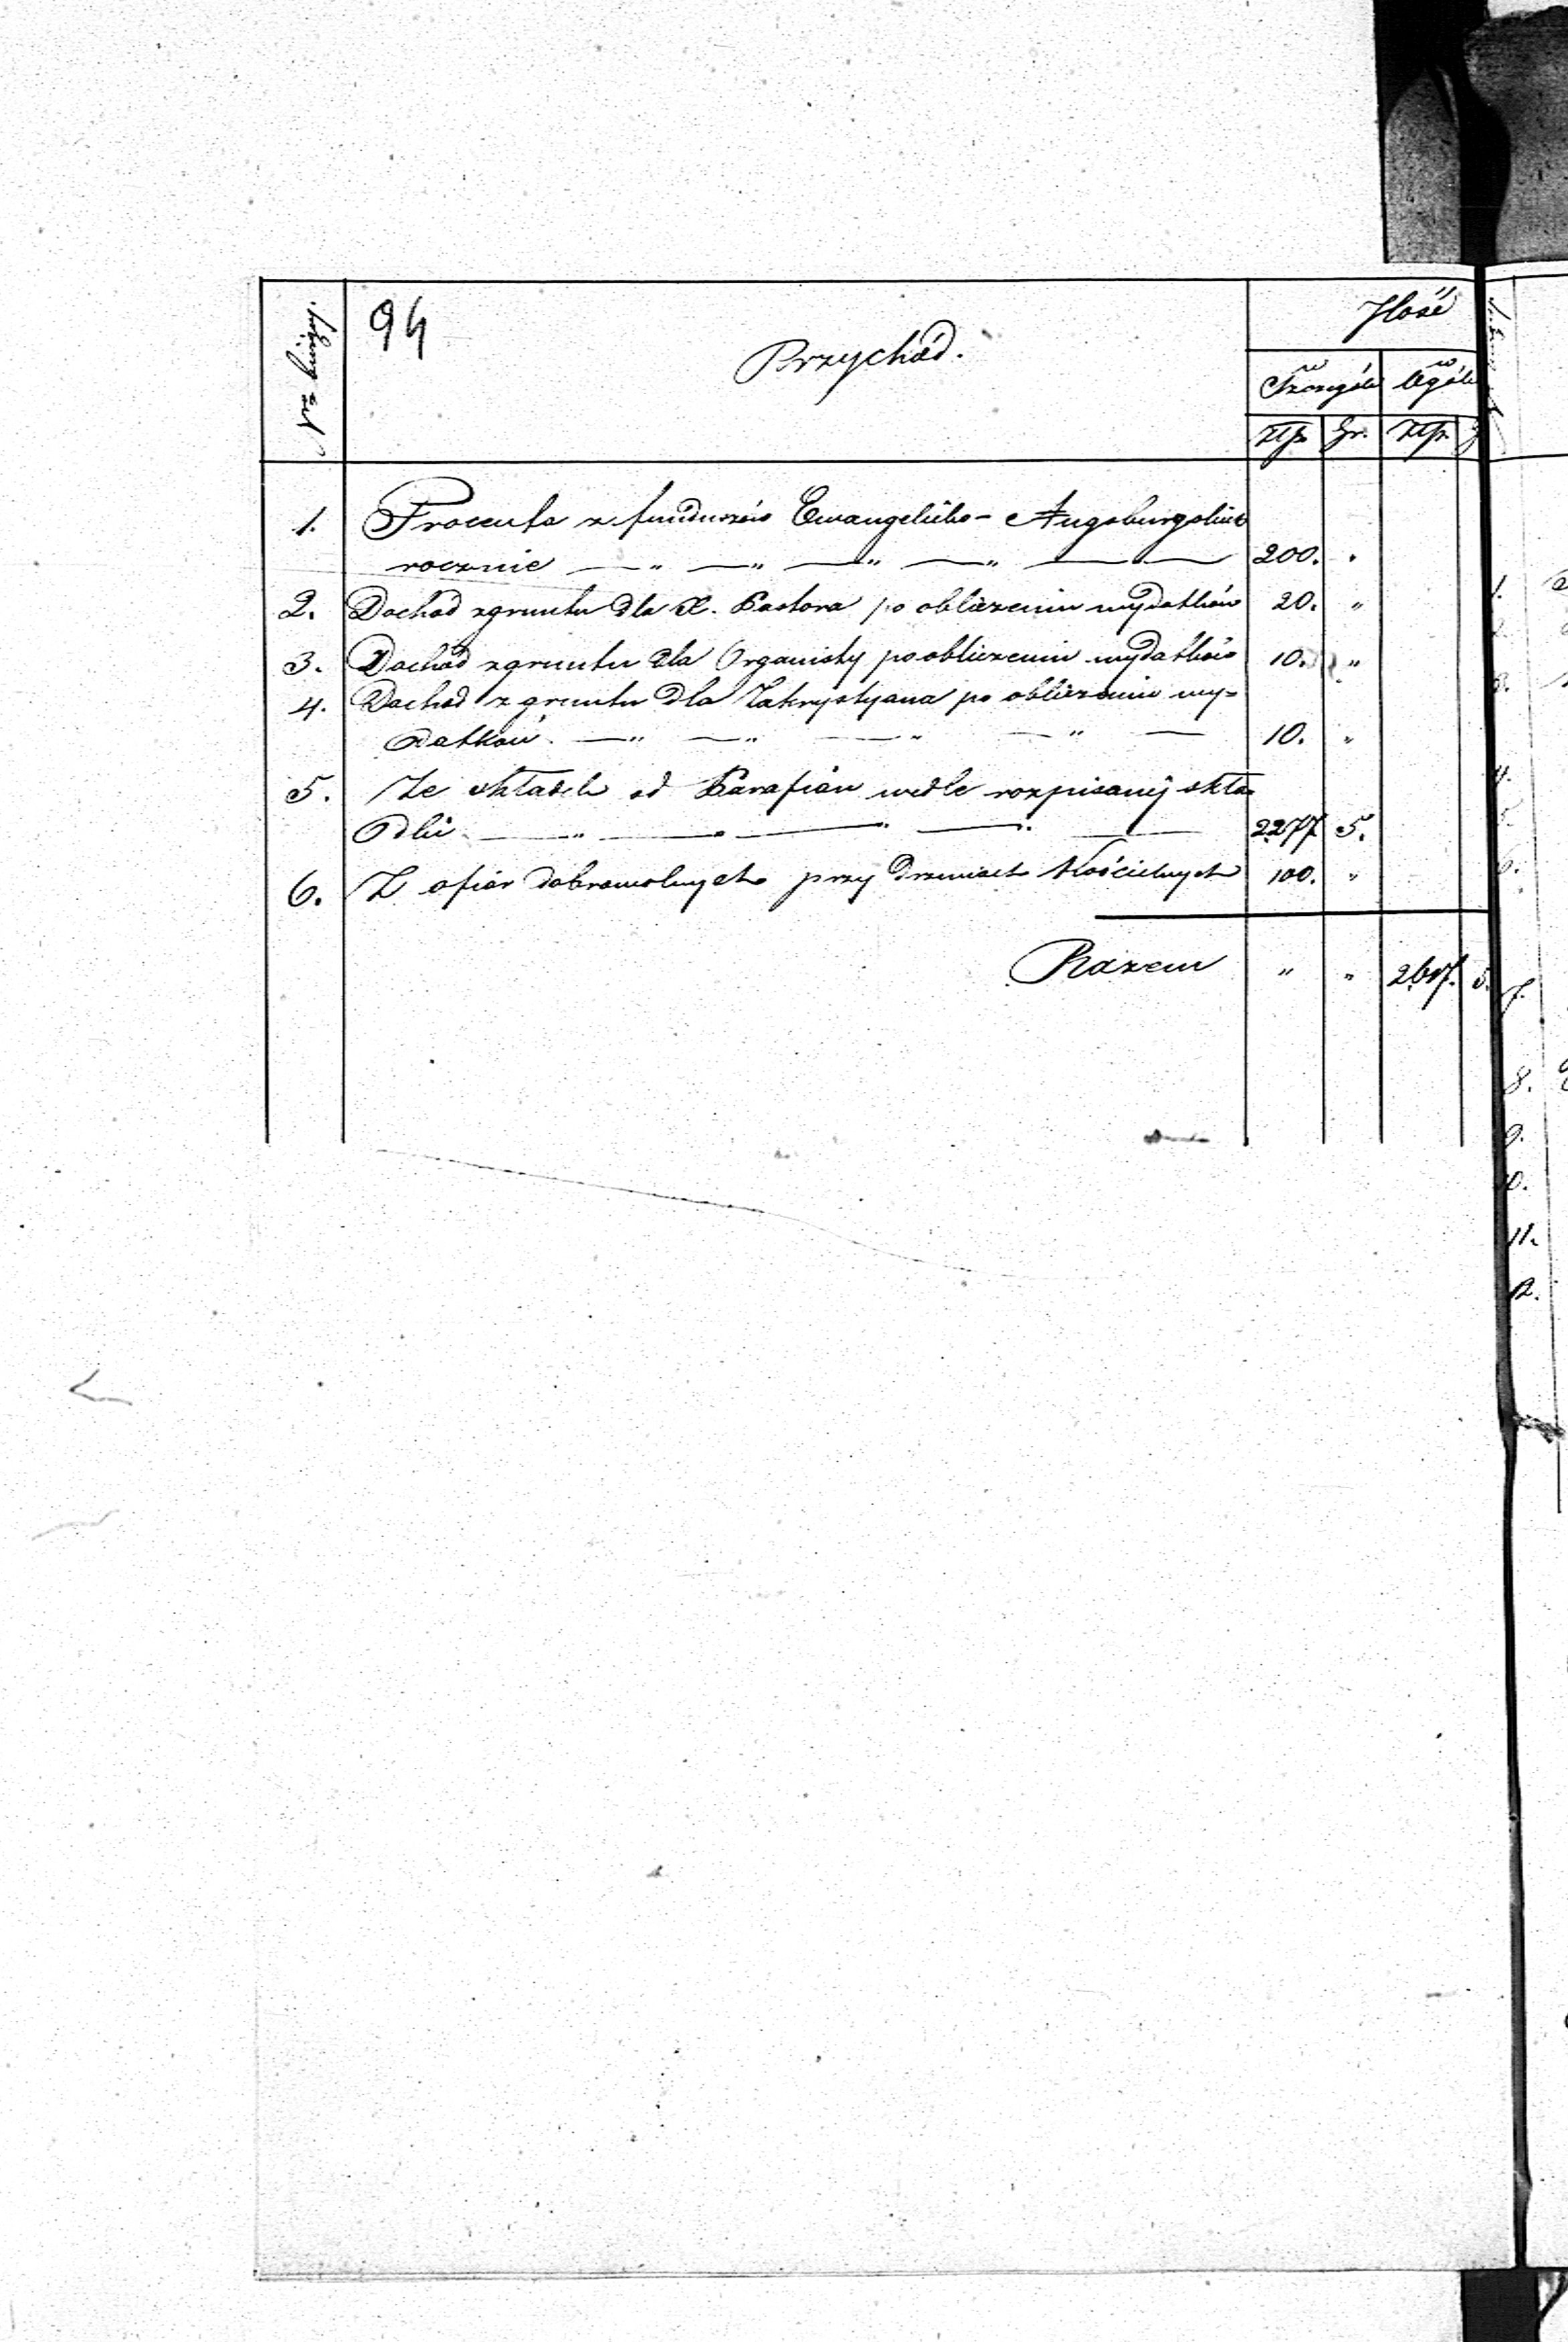 94
Przychód.
Ilość
w Szczególe
w Ogóle
złp. gr. złp.
1. Procenta z funduszów Ewangelicko- Augsburgskich
rocznie — " — " — " — " — 200. "
2. Dochod z gruntu dla X. Pastora po obliczeniu wydatków 20. "
3. Dochód z gruntu dla Organisty po obliczeniu wydatków 10. "
4. Dochod z gruntu dla Zakrystyana po obliczeniu wy=
datków. — " — " — " — " — 10. "
5. Ze składek od Parafian wedle rozpisanéj skła=
dki — " — " — " — " — 2277 5.
6. Z ofiar dobrowolnych przy drzwiach Kościelnych 100. "
Razem " " 2617. 5.
1.
4.
6.
7.
8.
9.
10.
11.
12.